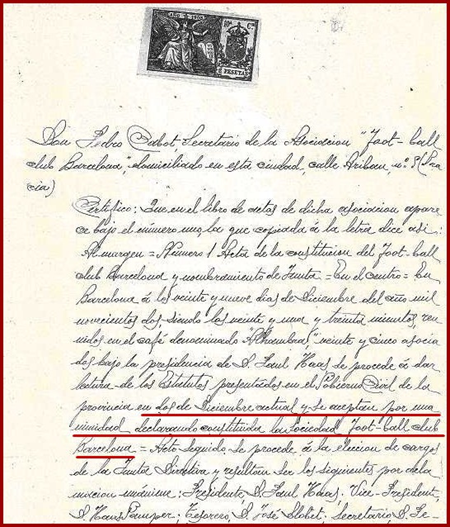 AÑO DE 1902
PESETA
Don Pedro Cabot, Secretario de la Asociacion "Foot-ball
club Barcelona", domiciliado en esta ciudad, calle Aribau, nº
Certifico: Que en el libro de actas de dicha asociacion apare
ce bajo el número uno, la que copiada á la letra dice asi:
Al margen = Número 1 Acta de la constitucion del Foot-ball
club Barcelona y nombramiento de Junta = En el centro = En
Barcelona á los veinte y nueve dias de Diciembre del año mil
novecientos dos siendo las veinte y una y treinta minutos, reu
nidos en el café denominado "Alhambra," veinte y cinco asocia
dos bajo la presidencia de D. Paul Haas se procede á dar
lectura de los Estatutos presentados en el Gobierno Civil de la
provincia en dos de Diciembre actual y se aceptan por una
nimidad declarando constituida la Sociedad Foot-ball club
Barcelona = Acto seguido se procede á la eleccion de cargos
de la Junta Directiva y resultan ser los siguientes por acla
macion unánime: Presidente D. Paul Haas. Vice-President,
D. Hans Gamper; Tesorero D. José Llobet; Secretario D. Pe-